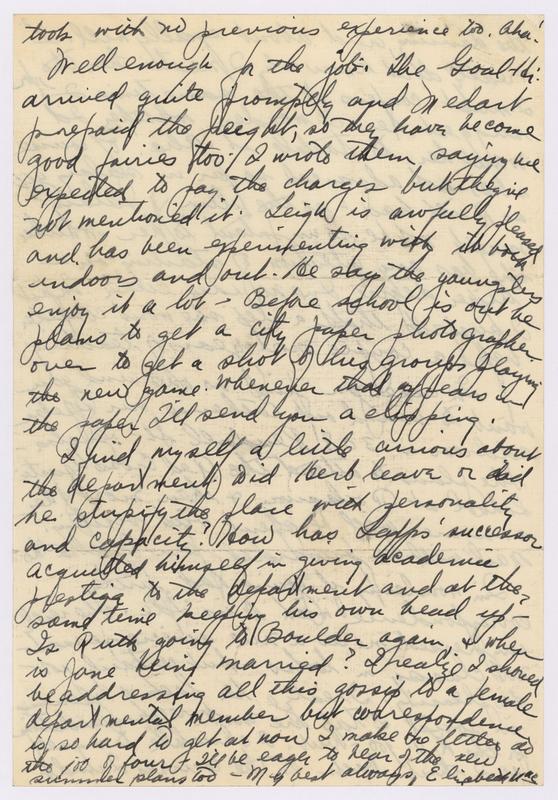 took with no previous experience too. Aha!
Well enough for the job. The Goal-Hi
arrived quite promptly and Medart
prepaid the freight, so they have become
good fairies too. I wrote them saying we
expected to pay the charges but they've
not mentioned it. Leigh is awfully pleased
and has been experimenting with it both
indoors and out. He says the youngsters
enjoy it a lot - Before school is out he
plans to get a city paper photographer
over to get a shot of his groups playing
the new game. Whenever that appears in
the paper I'll send you a clipping.
I find myself a little curious about
the department. Did Herb leave or did
he stupify the place with personality
and capacity? How has Lapps' successor
acquitted himself in giving academic
prestige to the department and at the
same time keeping his own head up -
Is Ruth going to Boulder again, & when
is Jane being married? I realize I should
be addressing all this gossip to a female
departmental member but correspondence
is so hard to get at now I make the letter do
the job of four - I'll be eager to hear of the new
summer plans too - My best always, Elizabeth